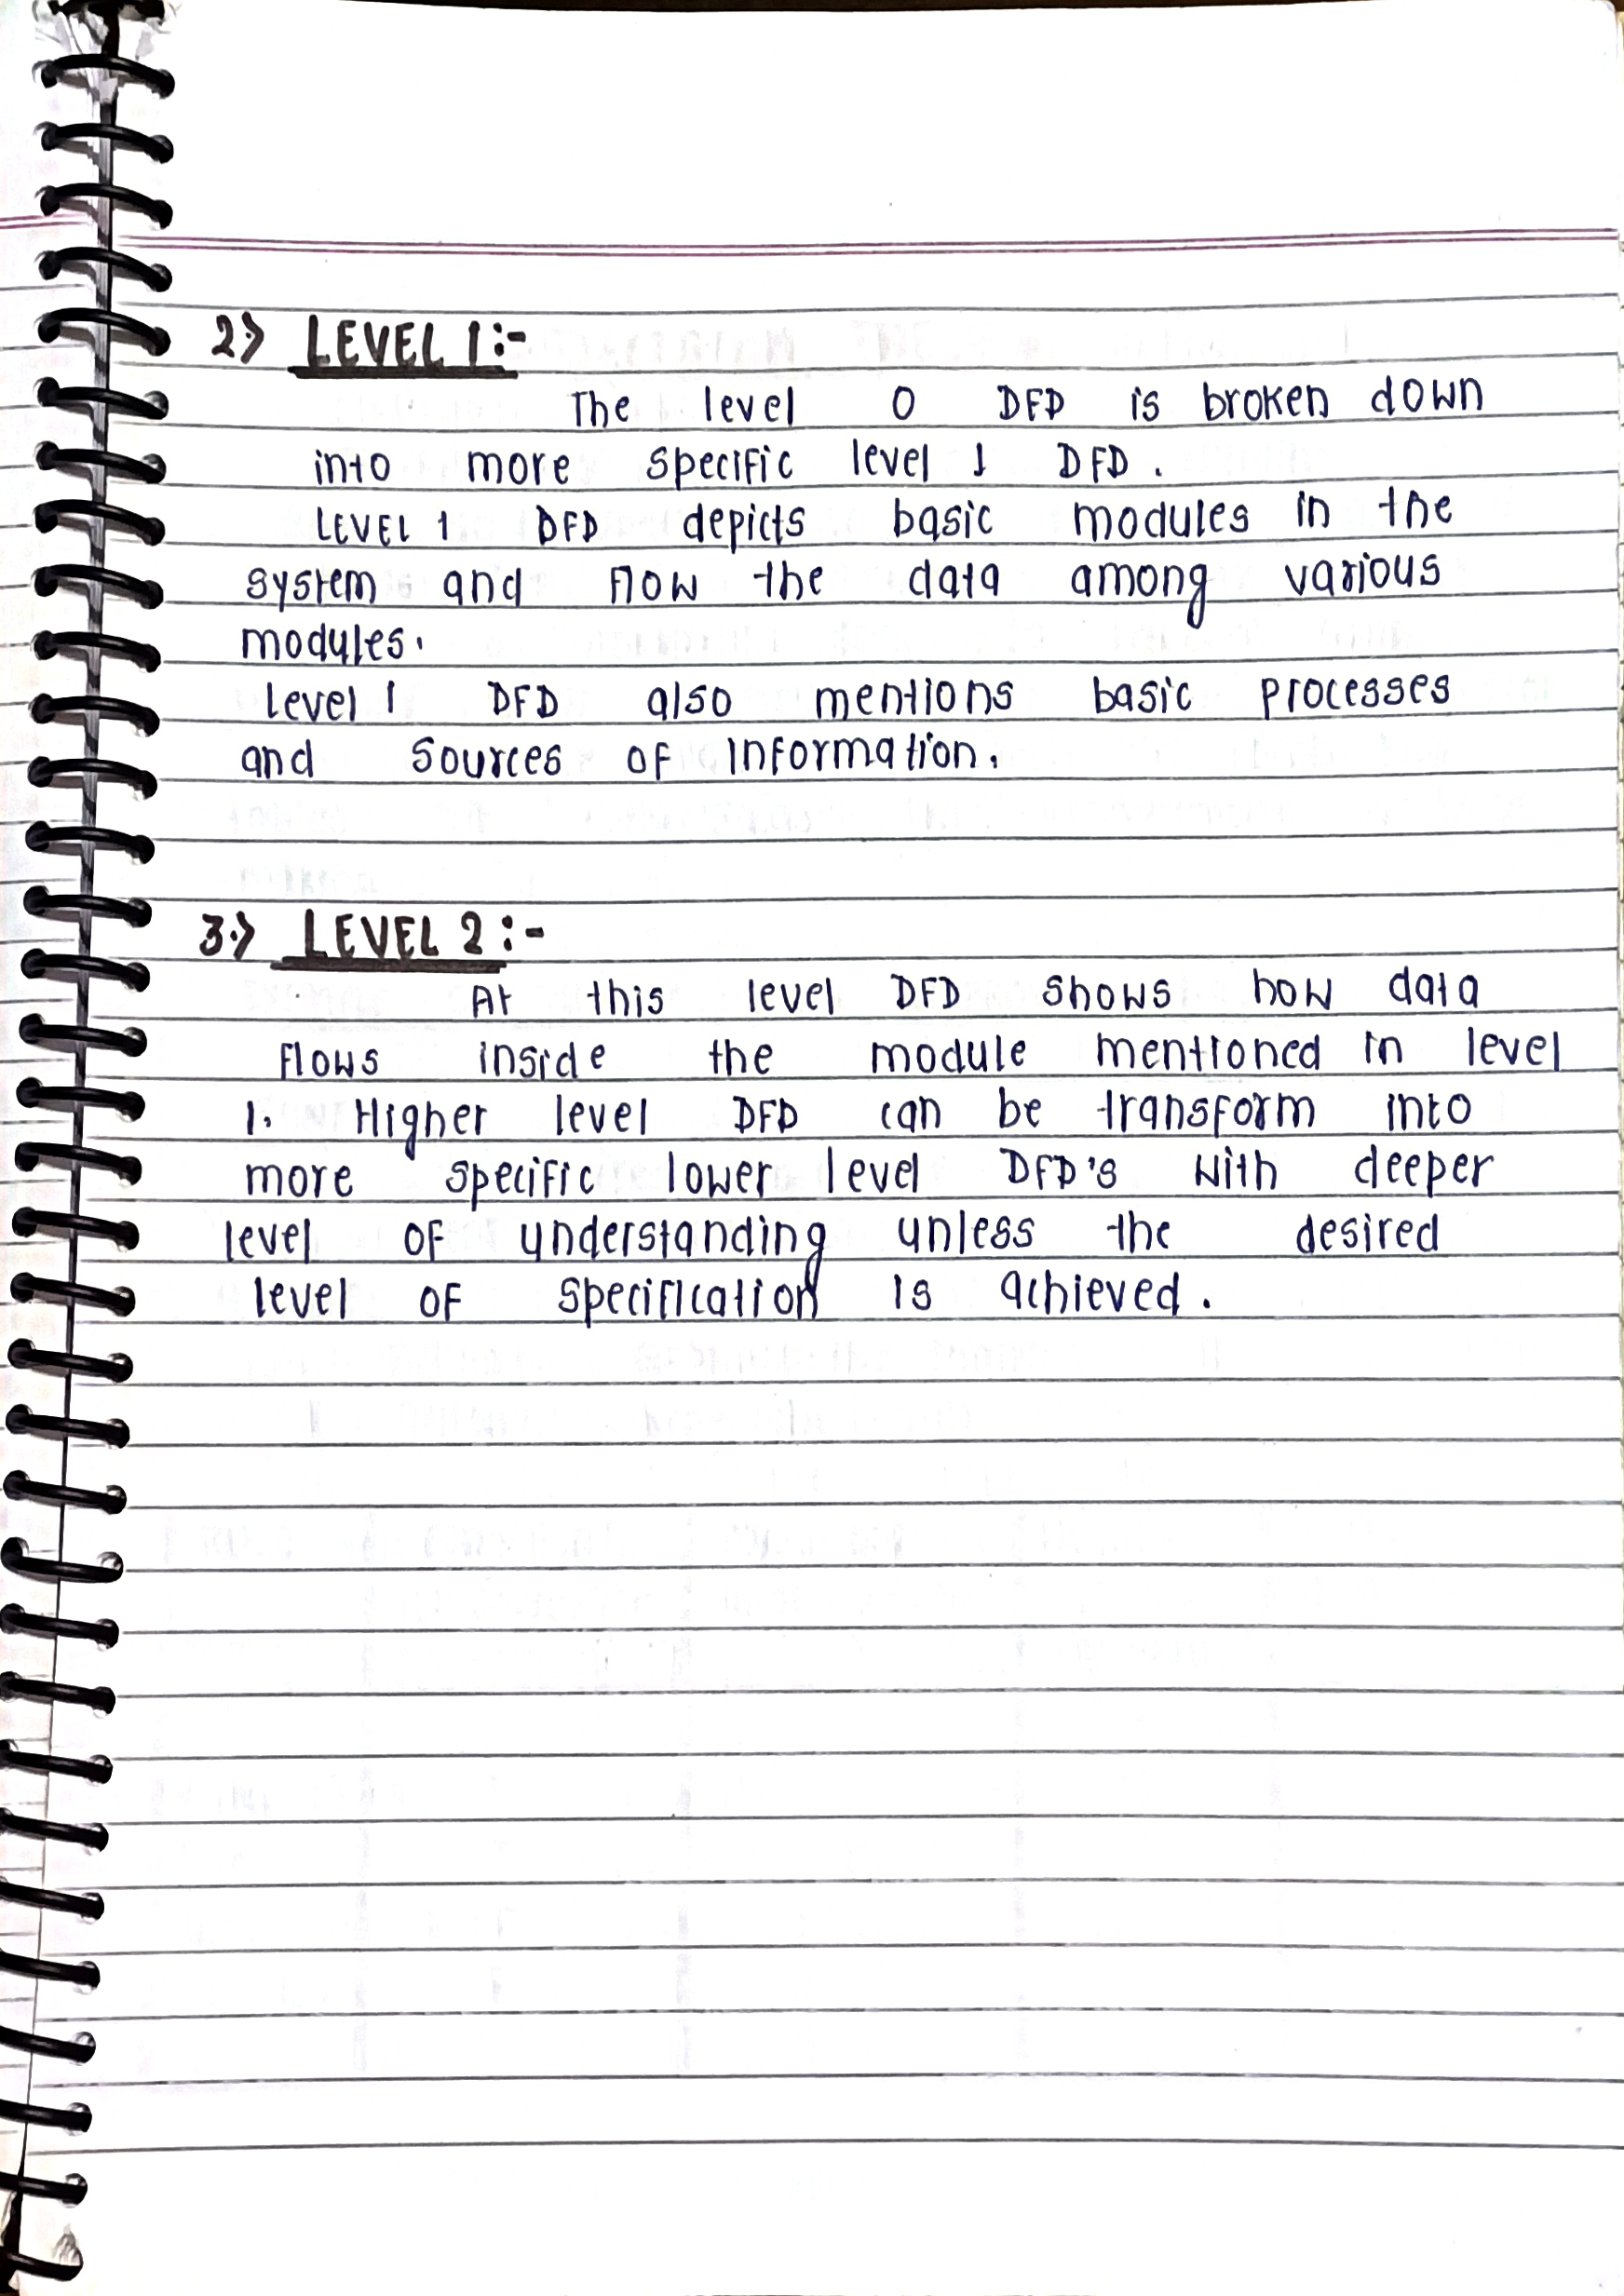 2.> LEVEL 1:-
The level 0 DFD is broken down
into more specific level 1 DFD.
LEVEL 1 DFD depicts basic modules in the
system and flow the data among various
modules.
Level 1 DFD also mentions basic processes
and sources of information.
3.> LEVEL 2:-
At this level DFD shows how data
flows inside the module mentioned in level
1. Higher level DFD can be transform into
more specific lower level DFD's with deeper
level of understanding unless the desired
level of specification is achieved.